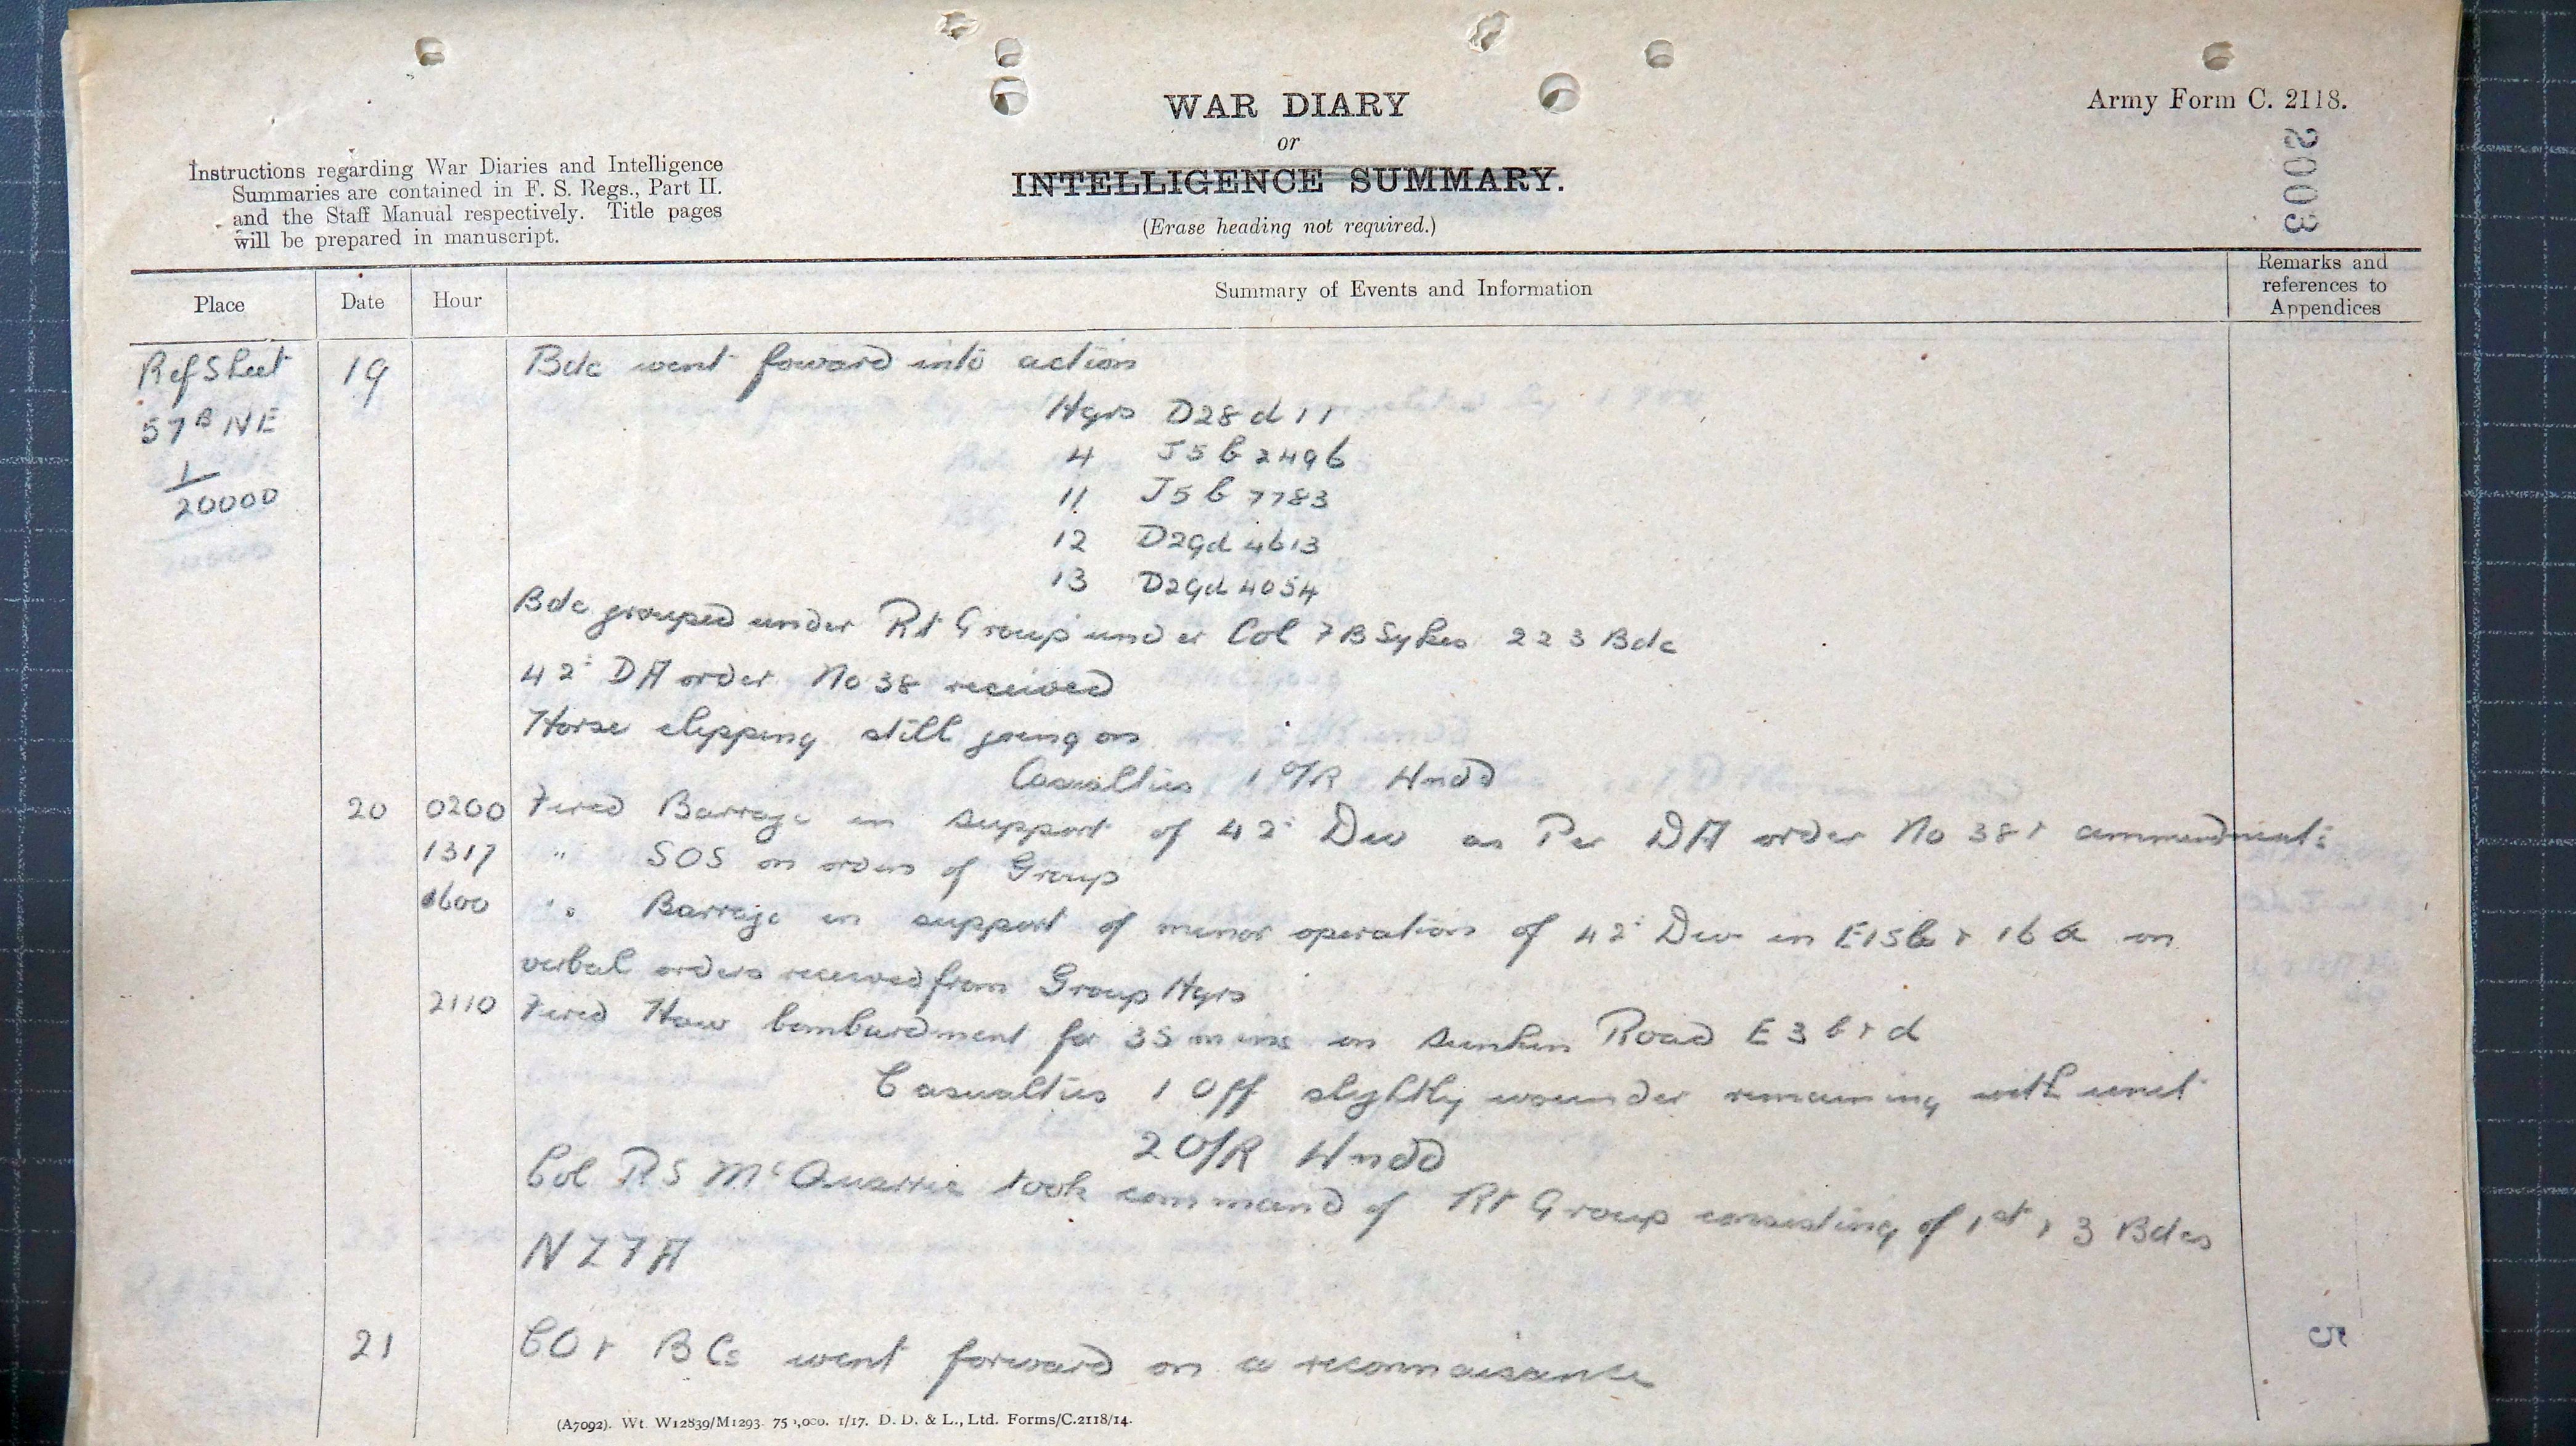 WAR DIARY
or
INTELLIGENCE SUMMARY.
(Erase heading not required.)
Army Form C. 2118.
2003
Instructions regarding War Diaries and Intelligence
Summaries are contained in F. S. Regs., Part II.
and the Staff Manual respectively. Title pages
will be prepared in manuscript.
Place Date Hour Summary of Events and Information Remarks and
references to
Appendices
Ref Sheet 19 Bde went foward into action
57B NE Hqrs D28 d 11
1/20000 4 J5 b 2496
11 J5 b 7783
12 D29d 4613
13 D29d 4054
Bde grouped under Rt Group under Col FB Sykes 223 Bde
42 DA order No 38 received
Horse clipping still going on
Casualties 1 O/R Wndd
20 0200 Fired Barrage in support of 42 Div as Per DA order No 38 + ammendments
1317 " SOS on orders of Group
1600 " Barrage in support of minor operations of 42 Div in E15b + 16a on
verbal orders received from Group Hqrs
2110 Fired How bombardment for 35 mins on sunken Road E3 b + d
Casualties 1 Off slightly wounder remaining with unit
2 O/R Wndd
Col RS McQuarrie took command of Rt Group consisting of 1st + 3 Bdes
NZFA
21 CO + BCs went forward on a reconnaisance
5
(A7092). Wt. W12839/M1293. 75 ,000. 1/17. D. D. & L., Ltd. Forms/C.2118/14.